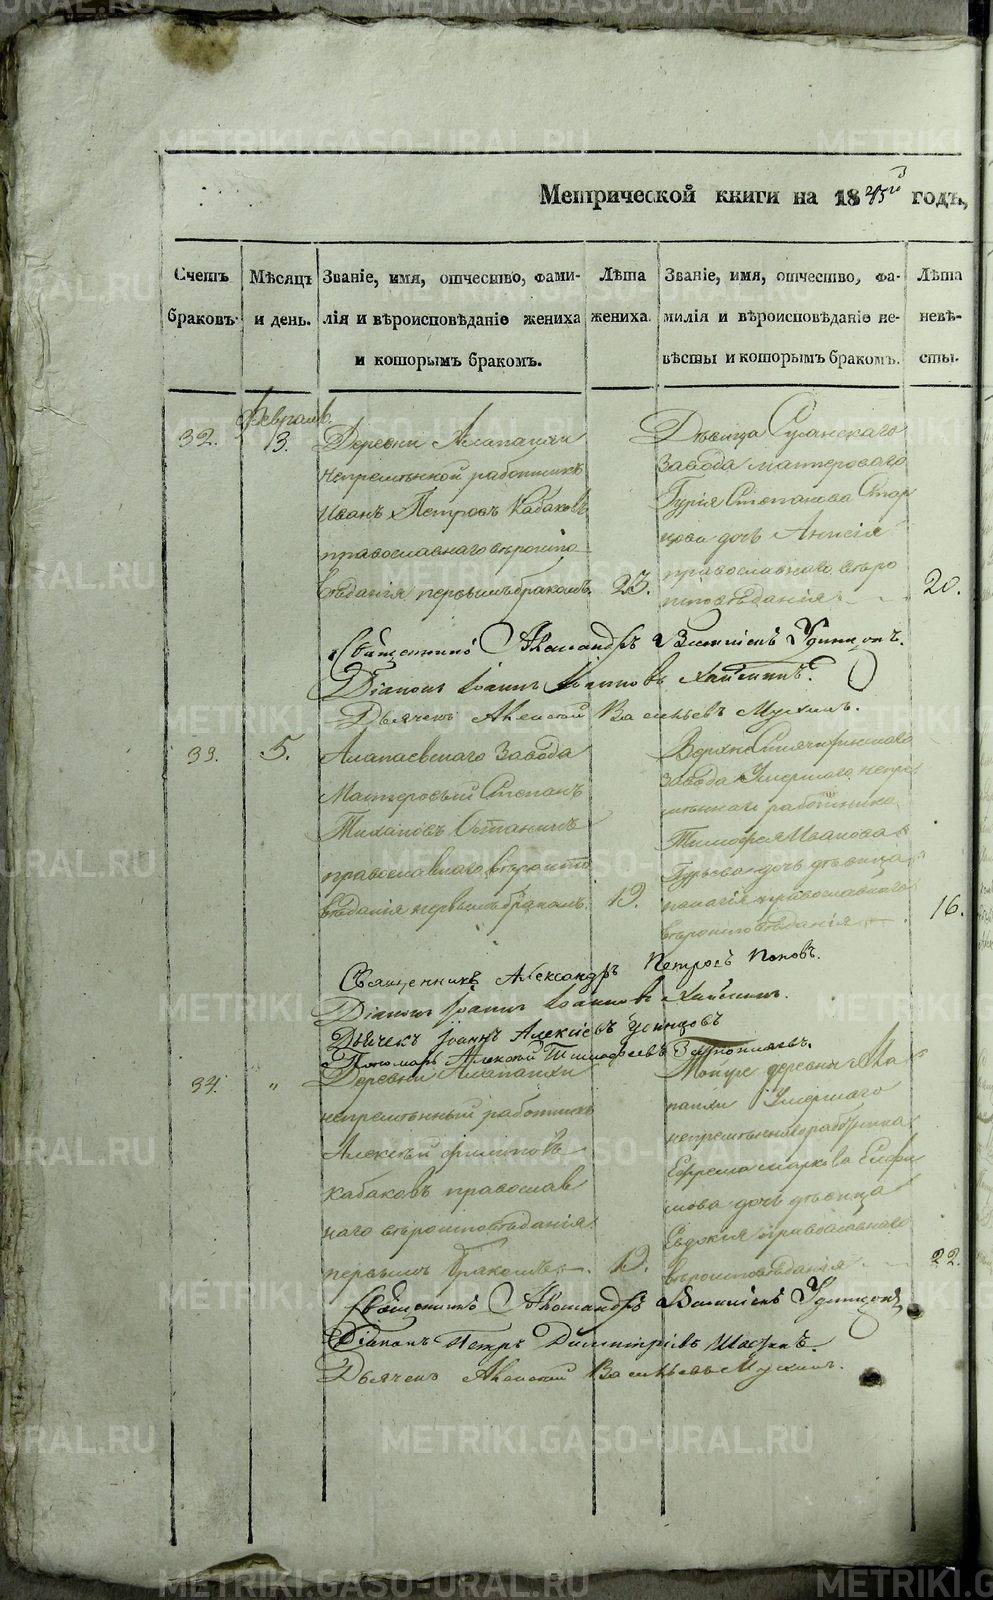 METRIKI.GASO-URAL.RU
Метрической книги на 1845го годъ,
Счетъ браковъ.
Мѣсяцъ и день.
Званіе, имя, отчество, фами-
лія и вѣроисповѣданіе жениха
и которымъ бракомъ.
Лѣта
жениха.
Званіе, имя, отчество, фа-
милія и вѣроисповѣданіе не-
вѣсты и которымъ бракомъ.
Лѣта
невѣ-
сты.
32.
Февраль
3.
Деревни Алапаихи
непремѣнной работникъ
Иванъ Петровъ Кабаковъ
православнаго вѣроиспо
вѣданія первымъ бракомъ.
23.
Дѣвица Сусанскаго
завода мастероваго
Гурія Степанова Стар
цова дочь Анисія
православнаго вѣро
исповѣданія
20.
Священникъ Александръ Удинцовъ.
Діаконъ Іоаннъ Іоанновъ
Дьячекъ Алексій Васильевъ Мухинъ.
33.
5.
Алапаевскаго Завода
Мастеровый Степанъ
Тихановъ Останинъ
православнаго вѣроиспо
вѣданія первымъ бракомъ.
19.
Верхне Синячихинскаго
завода Умершаго непре
мѣннаго работника
Тимофея Иванова
Гурьева дочь дѣвица
православнаго
вѣроисповѣданія
16.
Священникъ Александръ Петровъ Поповъ.
Діаконъ Іоаннъ Іоанновъ
Дьячекъ Іоаннъ Алексіевъ Удинцовъ
Пономарь Алексій Тимофеевъ
34.
"
Деревни Алапаихи
непремѣнный работникъ
Алексѣй Филиповъ
Кабаковъ православ
наго вѣроисповѣданія
первымъ бракомъ.
19.
Тоиже деревни Ала
паихи Умершаго
непремѣннаго работника
Ефрема Маркова
дочь дѣвица
Евдокія православнаго
вѣроисповѣданія
22.
Священникъ Александръ Удинцовъ
Діаконъ Петръ Димитріевъ
Дьячекъ Алексій Васильевъ Мухинъ.